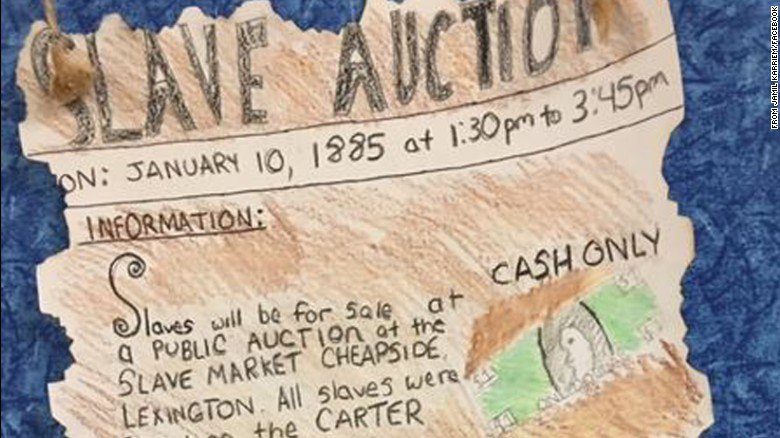 SLAVE AUCTION
ON: JANUARY 10, 1885 at 1:30pm to 3:45pm
INFORMATION:
CASH ONLY
Slaves will be for sale at
a PUBLIC AUCTION at the
SLAVE MARKET CHEAPSIDE,
LEXINGTON. All slaves were
the CARTER
$1
FROM JAMIL KARRIEM/FACEBOOK